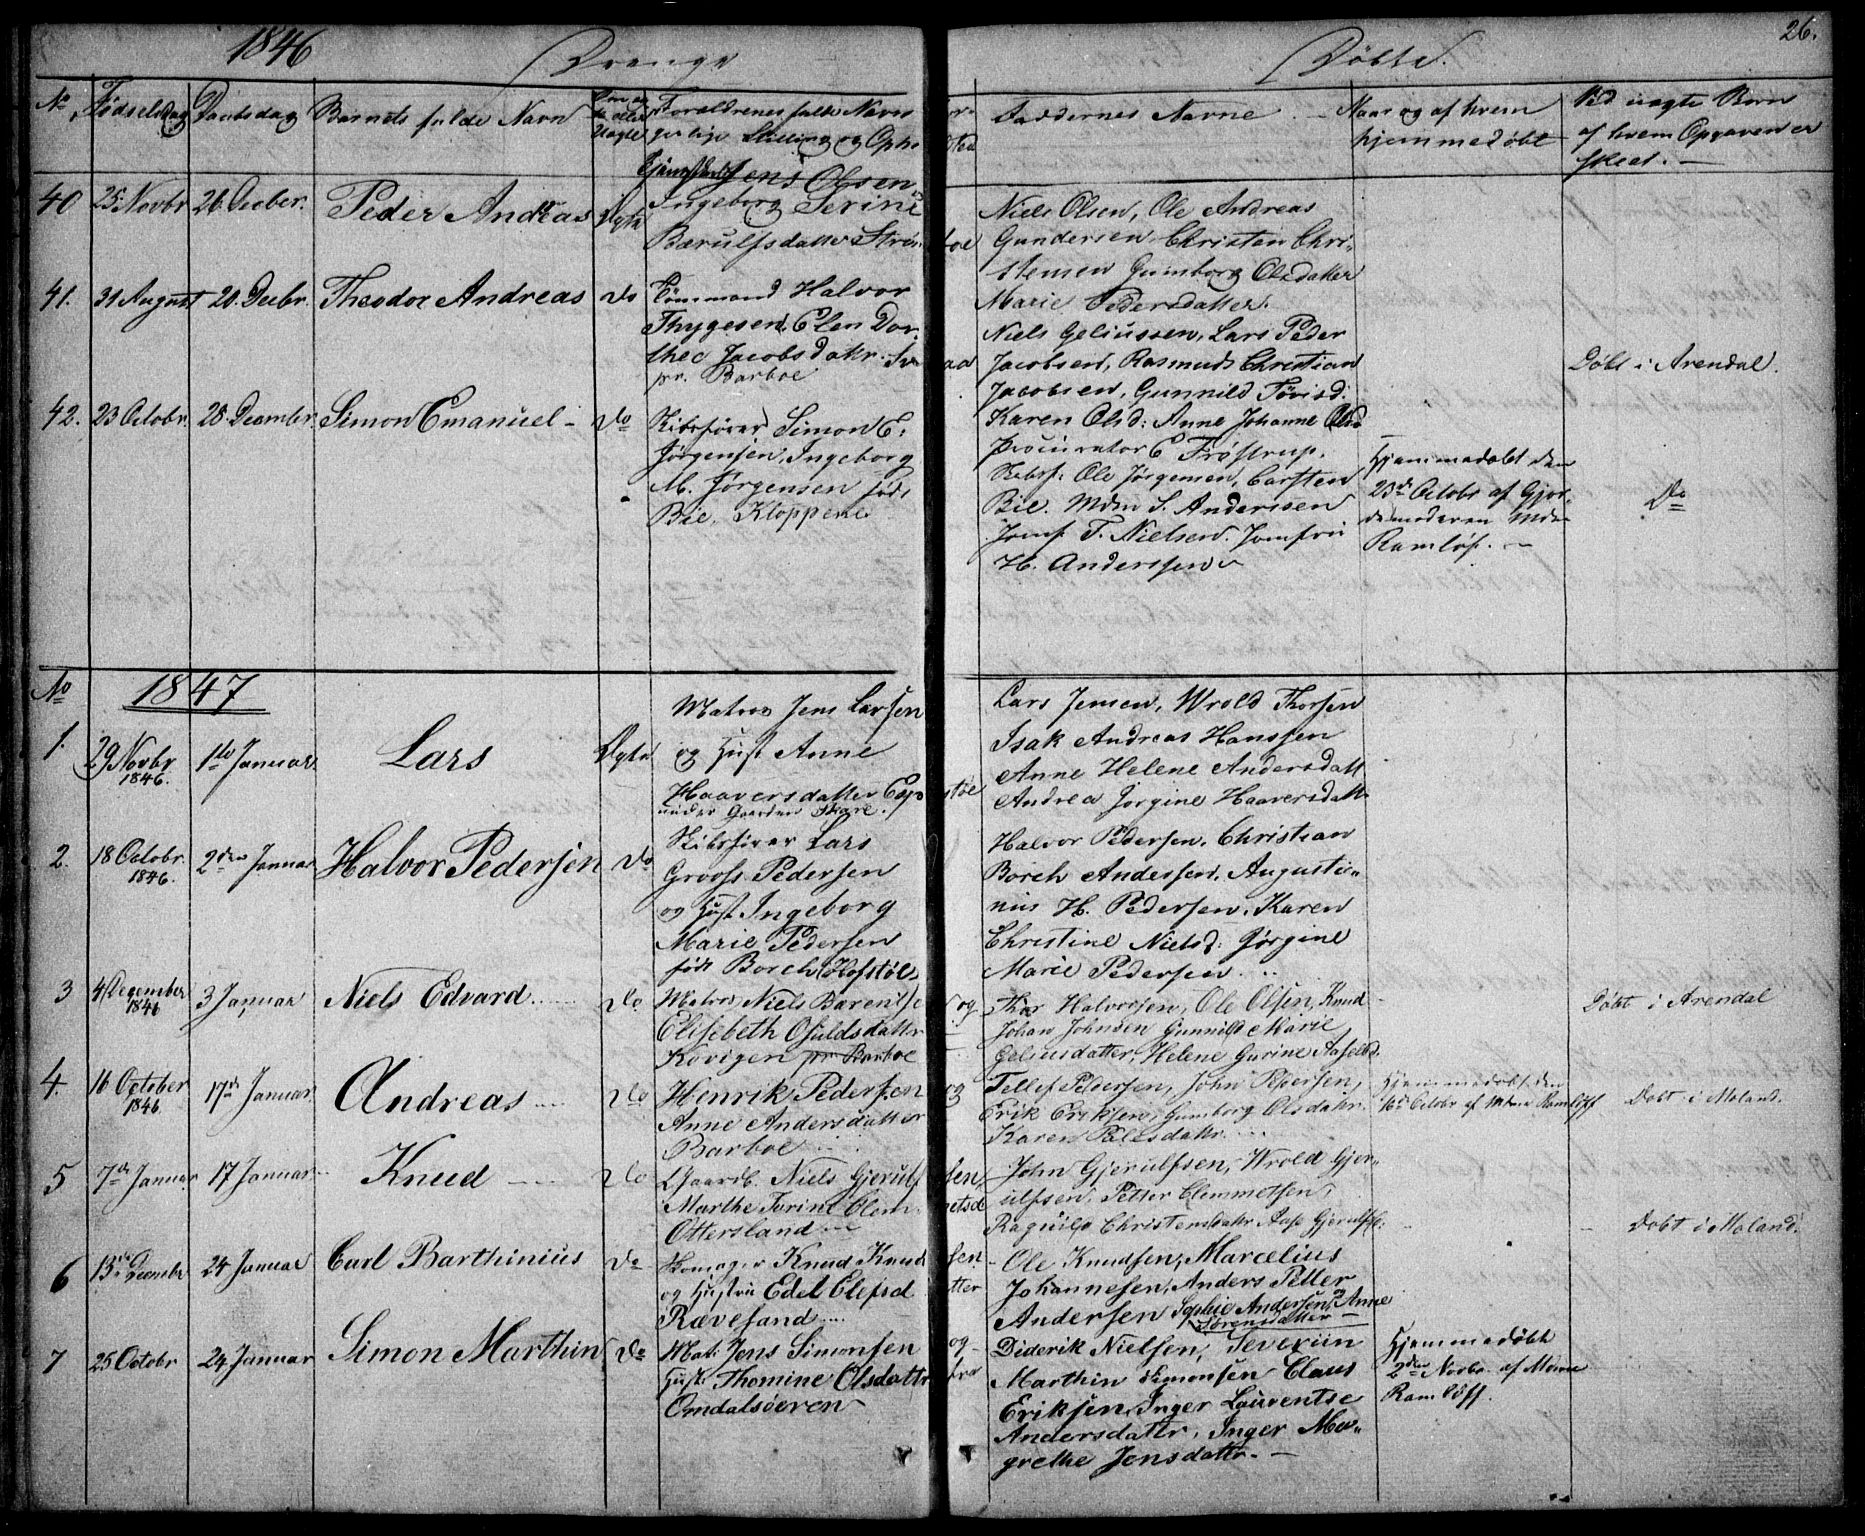 1846 Drenge Døbte. 26.
No Fødselsdag Daabsdag Barnets fulde Navn Forældrenes fulde Navn
gerlige Stilling og Faddernes Navne Naar og af hvem hjemmedøbt
Ved uægte Børn af hvem Opgaven er skeet.
40 25 Novbr 26 Decber. Peder Andreas Ægte
Jens Olsen
Ingeborg Serine
Bærulfsdatter
Niels Olsen, Ole Andreas
Gundersen Christen Chri-
stensen Gunborg Olsdatter
Marie Pedersdatter.
41. 31 August 20. Decbr. Theodor Andreas Do
Tømmermand Halvor
Thygesen, Elen Dor-
thea Jacobsdatr.
pr. Barboe
Niels Geliussen, Lars Peder
Jacobsen, Rasmus Christian
Jacobsen, Gunnild
Karen Olsd: Anne Johanne Olsd
Døbt i Arendal.
42. 23 Octobr. 28. December. Simon Emanuel - Do
Skibsfører Simon E.
Jørgensen, Ingeborg
M. Jørgensen født
Bie. Kloppene
Procurator C Frøstrup.
Skibsf. Ole Jørgensen, Carsten
Bie. Mdm S. Anderssen
Jomf. T. Nielsen. Jomfru
H. Anderssen
Hjemmedøbt den
23de Octobr af Gjor-
demoderen Mdm
Ramløf. -
Do
No 1847
1. 29 Novbr 1846. 1ste Januar. Lars Ægte
Matros Jens Larsen
og Hust Anne
Haaversdatter
under Gaarden
Lars Jensen, Wrold Thorsen
Isak Andreas Hanssen
Anne Helene Andersdatt
Andrea Jørgine Haaversdatt
2. 18 Octobr. 1846. 2den Januar Halvor Pedersen Do
Skibsfører Lars
Grooss Pedersen
og Hust Ingeborg
Marie Pedersen
født Borch Hofstøl
Halvor Pedersen. Christian
Borch Andersen. Augusti-
nius H. Pedersen. Karen
Christine Nielsd: Jørgine
Marie Pedersen ...
3 4 December 1846 3 Januar Niels Edvard ..... Do
Matros Niels Barentse og
Elisebeth Osuldsdattr
Kovigen pr Barboe
Thor Halvorsen, Ole Olsen, Knud
Johan Johnsen Gunnild Marie
Geliusdatter, Helene Gurine
Døbt i Arendal
4. 16 October 1846 17de Januar. Andreas .... Do
Henrik Pedersen og
Anne Andersdatter
Barboe
Tellef Pedersen, John Pedersen,
Erik Eriksen, Gunborg Olsdatr.
Karen
Hjemmedøbt den
16de Octobr af Mdme Ramløff
Døbt i Moland.
5 7de Januar 17 Januar. Knud .... Do
Gaardb. Niels Gjerulfsen,
Marthe Terine Clemetsd
Ottersland
John Gjerulfsen, Wrold Gjer-
ulfsen, Petter Clemmetsen,
Ragnild Christensdatr Aase
Døbt i Moland.
6 13de December 24 Januar Carl Barthinius Do
Skomager Knud Knudsen
og Hustru Edel
Rævesand ....
Ole Knudsen, Marcelius
Johannesen, Anders Petter
Andersen Sophie Andersen, Anne
Sørensdatter
7 25 Octobr 24 Januar Simon Marthin Do
Mat: Jens Simonsen og
Hust: Thomine Olsdattr
Omdalsøeren
Diderik Nielsen, Severiin
Marthin Simonsen Claus
Eriksen, Inger Laurentse
Andersdatr, Inger Ma-
grethe Jensdattr. -
Hjemmedøbt
2den Novbr. af Mdme
Ramløff.